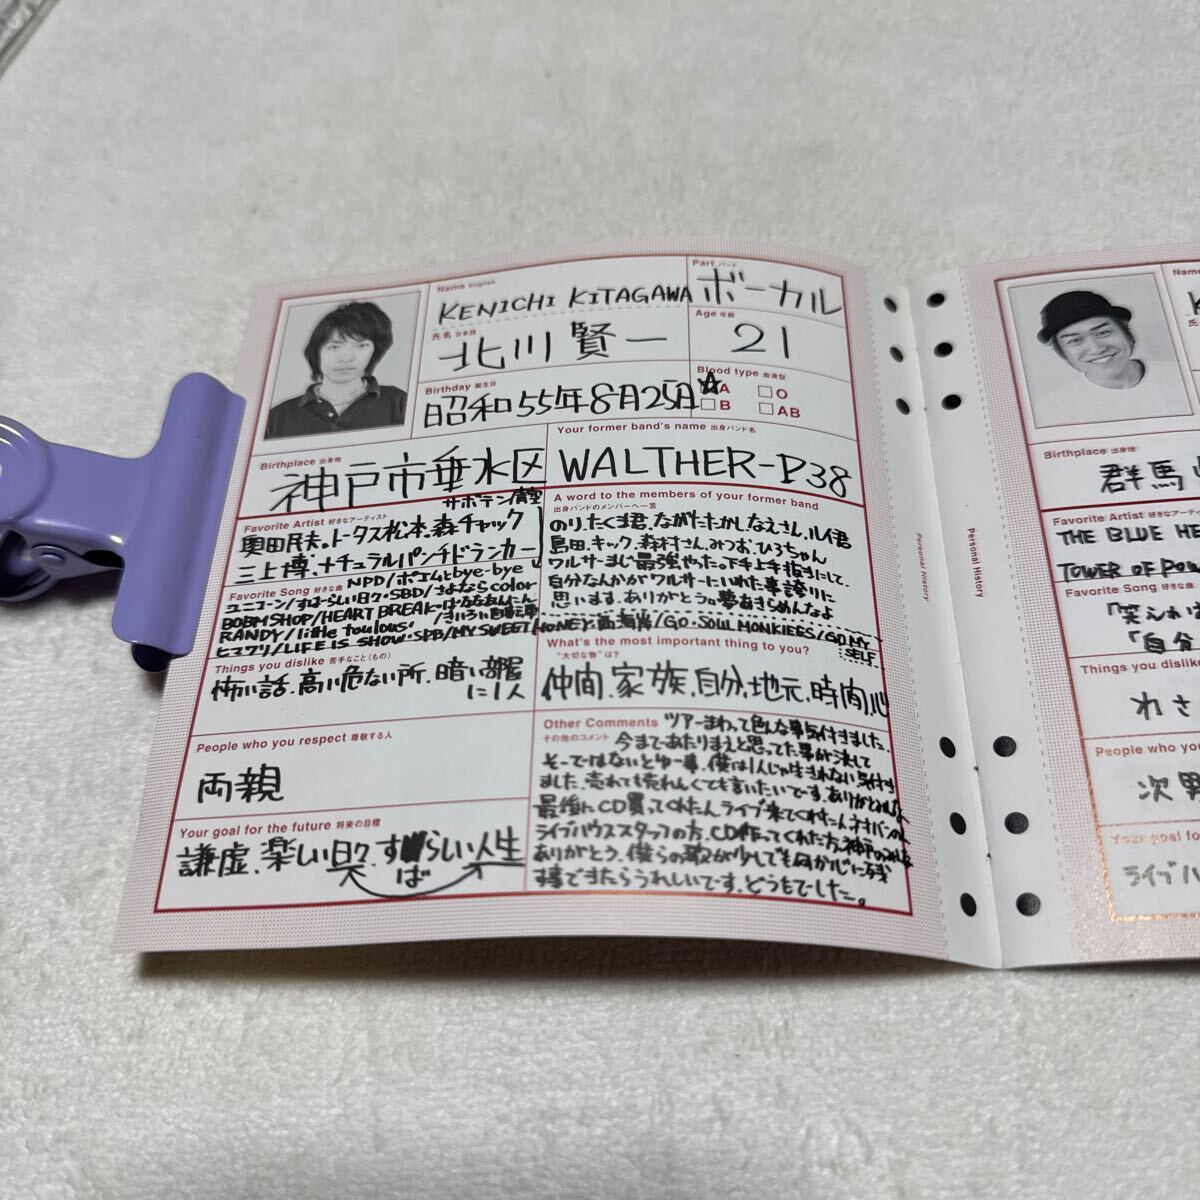 Name English
KENICHI KITAGAWA
Part パート
ボーカル
氏名 日本語
北川 賢一
Age 年齢
21
Birthday 誕生日
昭和55年8月25日
Blood type 血液型
A
O
B
AB
Birthplace 出身地
神戸市垂水区
Your former band's name 出身バンド名
WALTHER-P38
Favorite Artist 好きなアーティスト
サボテン高空
奥田民夫。トータス松本、森チャック
三上博、ナチュラルパンチドランカー
A word to the members of your former band
出身バンドのメンバーへ一言
のり、たくま君、ながたたかし、なえさん、ルイ君
島田、キック、森村さん、みつお、ひろちゃん
ワルサーまじ最強やった。下手上手抜きにして、
自分なんかがワルサーにいれた事誇りに
思います。ありがとう。夢あきらめんなよ
Favorite Song 好きな曲
NPD/ポエムとbye-bye
ユニコーン/すばらしい日々・SBD/さよならcolor
BOBMSHOP/HEART BREAK・はなななんたん
RANDY/little toulous'/きいろい自転車
ヒマワリ/LIFE IS SHOW・SPB/MY SWEET HONEY・西海岸/GO・SOUL MONKIEES/GO MY
SELF
Things you dislike 苦手なこと(もの)
怖い話、高い危ない所、暗い部屋
に1人
What's the most important thing to you?
"大切な物"は?
仲間、家族、自分、地元、時間、心
People who you respect 尊敬する人
両親
Other Comments
その他のコメント
ツアーまわって色んな事気付きました。
今まであたりまえと思ってた事が決して
そーではないとゆー事、僕は1人じゃ生きれない気付き
ました。売れても売れんくても言いたいです。ありがとみんな
最後にCD買ってくれたん、ライブ来てくれたん、
ライブハウススタッフの方、CD作ってくれた方、神戸のみんな
ありがとう。僕らの歌が少しでも何か心に残
す事できたらうれしいです。どうもでした。
Your goal for the future 将来の目標
謙虚、楽しい日々、すばらしい人生
Personal History
Personal History
Name
氏名
Birthplace 出身地
群馬
Favorite Artist 好きなアーティスト
THE BLUE HE
TOWER OF POW
Favorite Song 好きな曲
「笑えれ
「自分
Things you dislike
わさ
People who you
次男
Your goal for
ライブハ